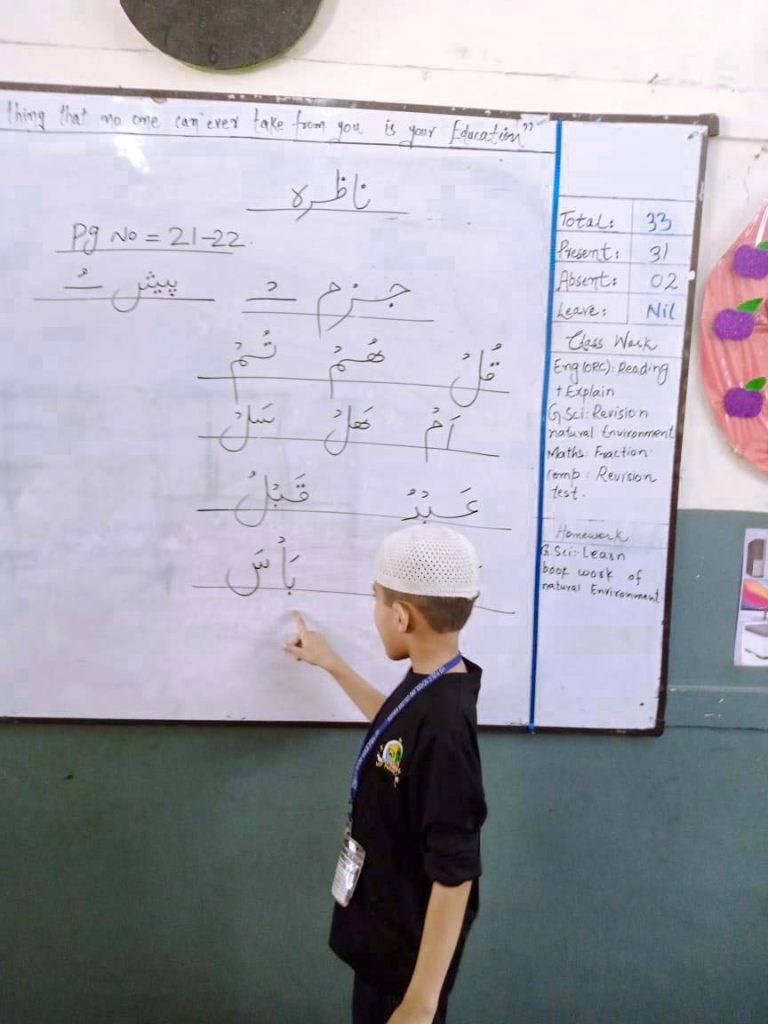 thing that no one can ever take from you is your Education"
ناظرہ
Pg No = 21-22
جزم ـْـ پیش ـُـ
قُلْ هُمْ تُمْ
اَمْ هَلْ سَلْ
عَبْدُ قَبْلُ
بَأْسَ
Total: 33
Present: 31
Absent: 02
Leave: Nil
Class Work
Eng (ORC): Reading
+ Explain
G.Sci: Revision
natural Environment
Maths: Fraction
comp: Revision
test.
Homework
G.Sci:- Learn
book work of
natural Environment.